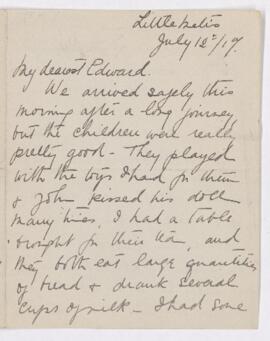 Little Metis
July 12th/17.
My dearest Edward.
We arrived safely this
morning after a long journey
but the children were really
pretty good - They played
with the toys I had for them
& John kissed his doll
many times. I had a table
brought for their tea, and
they both eat large quantities
of bread & drank several
cups of milk - I had some